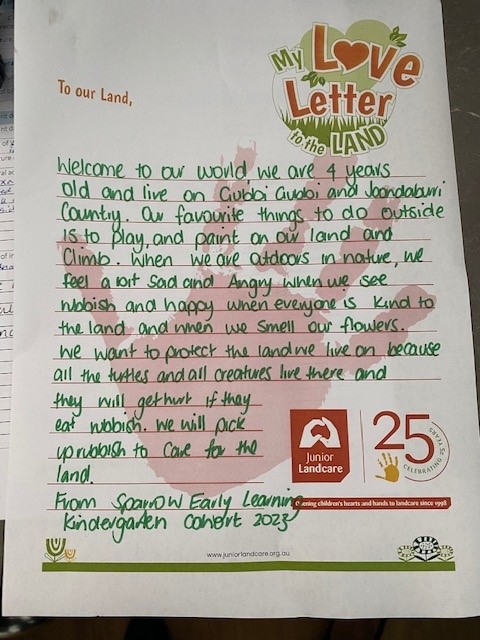 My Love
Letter
to the LAND
To our Land,
Welcome to our world we are 4 years
old and live on Gubbi Gubbi and Joondaburi
Country. Our favourite things to do outside
is to play, and paint on our land and
Climb. When we are outdoors in nature, we
feel a bit Sad and Angry when we see
rubbish and happy when everyone is kind to
the land and when we smell our flowers.
We want to protect the land we live on because
all the turtles and all creatures live there and
they will get hurt if they
eat rubbish. We will pick
up rubbish to care for the
land.
From Sparrow Early Learning
Kindergarten Cohort 2023
Junior
Landcare
25
CELEBRATING 25 YEARS
Opening children's hearts and hands to landcare since 1998
www.juniorlandcare.org.au